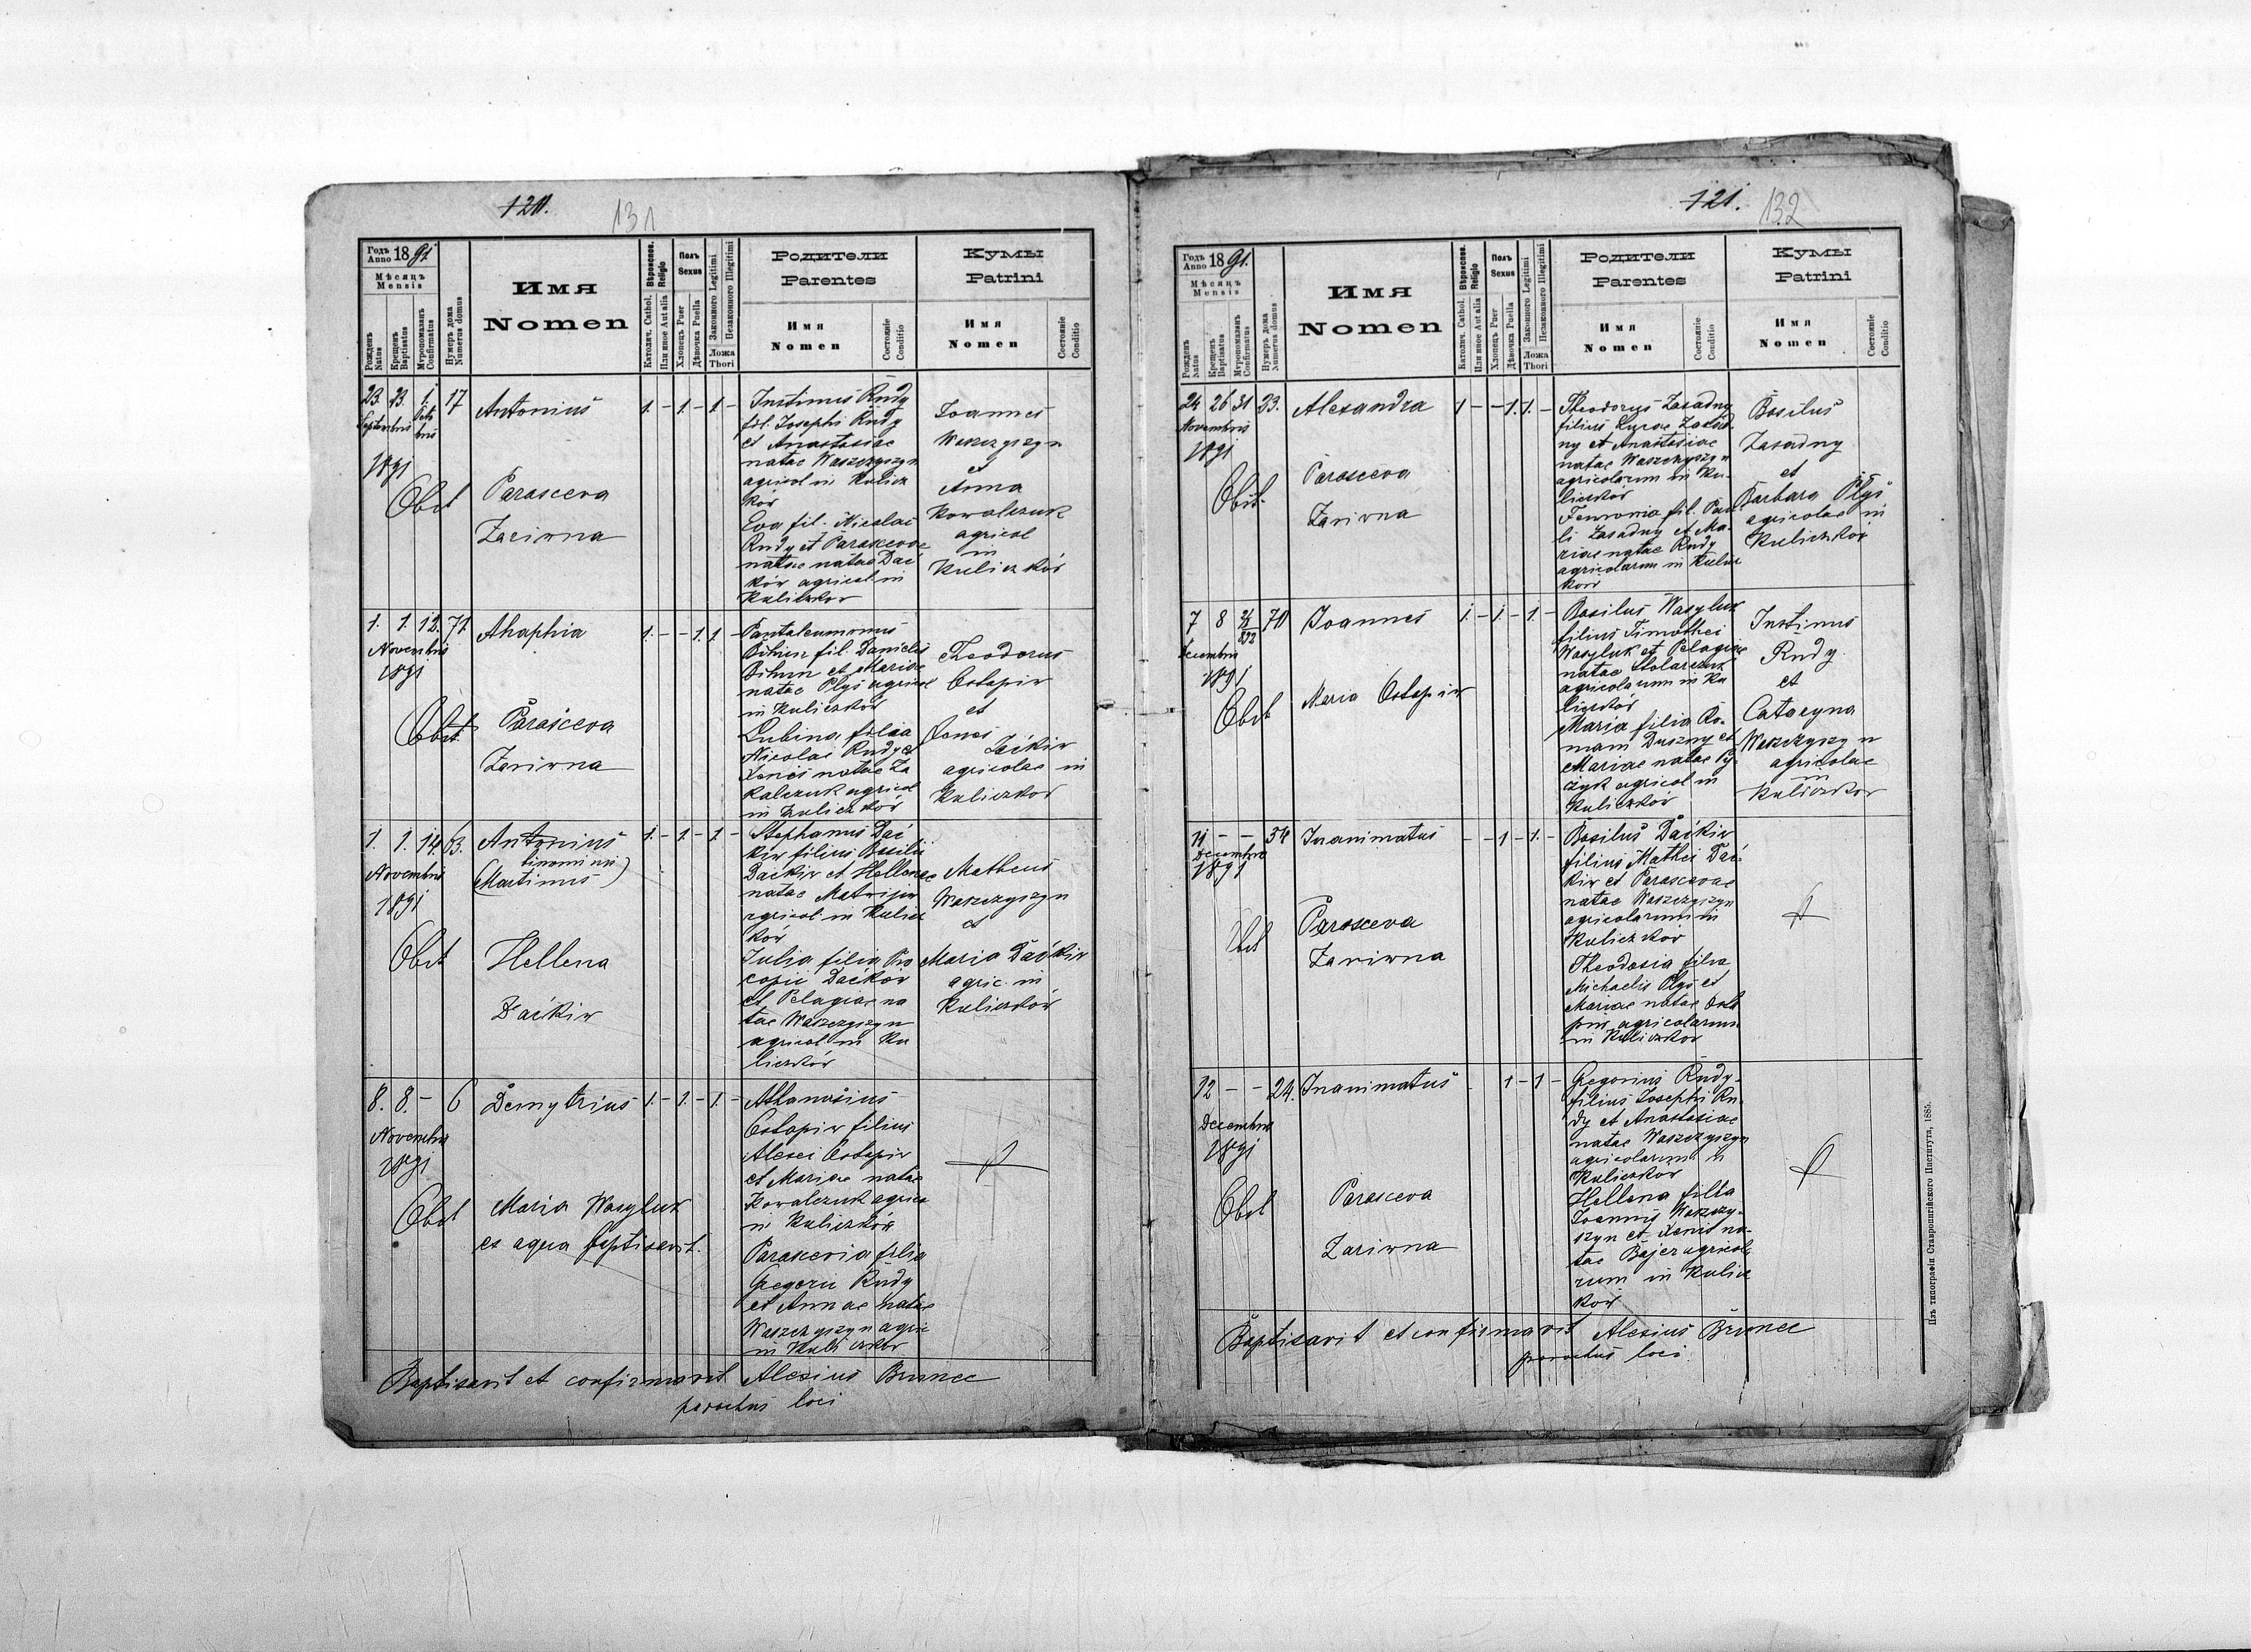 120.
131
Годъ
Anno 1891
Мѣсяцъ
Mensis
Рожденъ
Natus
Крещенъ
Baptisatus
Мѵропомазанъ
Confirmatus
Нумеръ дома
Numerus domus
Имя
Nomen
Вѣроиспов.
Religio
Католич. Cathol.
Или иное Aut alia
Полъ
Sexus
Хлопецъ Puer
Дѣвочка Puella
Законного Legitimi
Незаконного Illegitimi
Ложа
Thori
Родители
Parentes
Имя
Nomen
Состояніе
Conditio
Кумы
Patrini
Имя
Nomen
Состояніе
Conditio
23. 23. 1. 17
Septembris
1891
Obst
Antonius
Parasceva
Zariwna
1. – 1. – 1. –
Justinus Rudy
fil. Josephi Rudy
et Anastasiae
natae Waszczyszyn
agricol in Kulicz
ków
Eva fil. Nicolai
Rudy et Parascevae
natae natae Dać
ków agricol in
Kuliczkow
Joannes
Waszczyszyn
et
Anna
Kowalczuk
agricol
in
Kuliczków
1. 1. 12. 71
Novembris
1891
Obst
Ahaphia
Parasceva
Zariwna
1. – – 1. 1. –
Pantaleumonus
Bihun fil. Danielis
Bihun et Mariae
natae Plyś agricol
in Kuliczków
Lubina filia
Nicolai Rudy et
Xeniś natae Za
kalczuk agricol
in Kuliczków
Theodorus
Ostapiw
et
Daćkiw
agricolae in
Kuliczkow
1. 1. 14. 63.
Novembris
1891
Obst
Antonius
binominis
(Martinus)
Hellena
Daćkiw
1. – 1. – 1. –
Stephanus Dać
kiw filius Basilii
Daćkiw et Hellenae
natae Matwijiw
agricol. in Kulicz
ków
Julia filia Pro
copii Daćków
et Pelagiae na
tae Waszczyszyn
agricol in Ku
liczków
Matheus
Waszczyszyn
et
Maria Daćkiw
agric. in
Kuliczków
8. 8. – 6
Novembris
1891
Obst
Demytrius
Maria Wasyluk
ex aqua baptisavit.
1. – 1. – 1. –
Athanasius
Ostapiw filius
Alexei Ostapiw
et Mariae natae
Kowalczuk agrico
in Kuliczków
Parascevia filia
Gregorii Rudy
et Annae natae
Waszczyszyn agric
in Kuliczkow
Baptisavit et confirmavit Alexius Brunec
parochus loci
121.
132
Годъ
Anno 1891.
Мѣсяцъ
Mensis
Рожденъ
Natus
Крещенъ
Baptisatus
Мѵропомазанъ
Confirmatus
Нумеръ дома
Numerus domus
Имя
Nomen
Вѣроиспов.
Religio
Католич. Cathol.
Или иное Aut alia
Полъ
Sexus
Хлопецъ Puer
Дѣвочка Puella
Законного Legitimi
Незаконного Illegitimi
Ложа
Thori
Родители
Parentes
Имя
Nomen
Состояніе
Conditio
Кумы
Patrini
Имя
Nomen
Состояніе
Conditio
24 26 31 33.
Novembris
1891
Obst.
Alexandra
Parasceva
Zariwna
1 – – 1. 1. –
Theodorus Zasadny
filius Lucae Zasad
ny et Anastasiae
natae Waszczyszyn
agricolarum in Ku-
liczków
Fewronia fil. Pau
li Zasadny et Ma-
riae natae Rudy
agricolarum in Kulicz
ków
Basilus
Zasadny
et
Barbara Plyś
agricolae in
Kuliczków
7 8 70
Decembris
1891
Obst
Joannes
Maria Ostapiw
1. – 1. – 1. –
Basilus Wasyluk
filius Timothei
Wasyluk et Pelagiae
natae Stolarczuk
agricolarum in Ku
liczków
Maria filia Ro-
mani Duszny et
Mariae natae Py
żyk agricol in
Kuliczków
Justinus
Rudy
et
Cataryna
Waszczyszyn
agricolae
in
Kuliczkow
11 – – 34
Decembris
1891
Obst
Inanimatus
Parasceva
Zariwna
– – 1 – 1. –
Basilus Daćkiw
filius Mathei Dać-
kiw et Parascevae
natae Waszczyszyn
agricolarum in
Kuliczków
Theodosia filia
Michaelis Plyś et
Mariae natae Osta
piw agricolarum
in Kuliczkow
12 – – 24.
Decembris
1891
Obst
Inanimatus
Parasceva
Zariwna
1 – 1 –
Gregorius Rudy
filius Josephi Ru-
dy et Anastasiae
natae Waszczyszyn
agricolarum in
Kuliczkow
Hellena filia
Joannis Waszczy-
szyn et Xeniś na-
tae Bajer agricola
rum in Kulicz
kow
Baptisavit et confirmavit Alexius Brunec
parochus loci.
Изъ типографіи Ставропигійского Института, 1885.